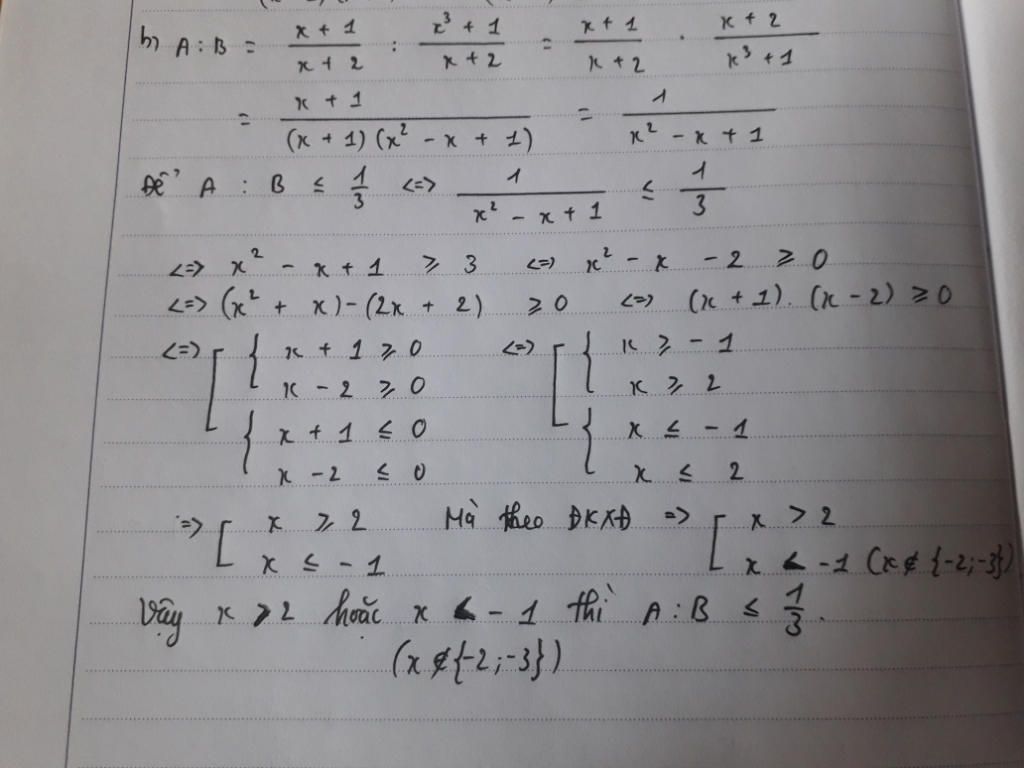 b) A : B = \frac{x + 1}{x + 2} : \frac{x^3 + 1}{x + 2} = \frac{x + 1}{x + 2} . \frac{x + 2}{x^3 + 1}
= \frac{x + 1}{(x + 1)(x^2 - x + 1)} = \frac{1}{x^2 - x + 1}
Để A : B ≤ \frac{1}{3} <=> \frac{1}{x^2 - x + 1} ≤ \frac{1}{3}
<=> x^2 - x + 1 ≥ 3 <=> x^2 - x - 2 ≥ 0
<=> (x^2 + x) - (2x + 2) ≥ 0 <=> (x + 1). (x - 2) ≥ 0
<=> [ { x + 1 ≥ 0 <=> [ { x ≥ - 1
x - 2 ≥ 0 x ≥ 2
{ x + 1 ≤ 0 { x ≤ - 1
x - 2 ≤ 0 x ≤ 2
=> [ x ≥ 2 Mà theo ĐKXĐ => [ x > 2
x ≤ - 1 x < -1 (x ∉ {-2;-3})
Vậy x > 2 hoặc x < - 1 thì A : B ≤ \frac{1}{3}.
(x ∉ {-2;-3})